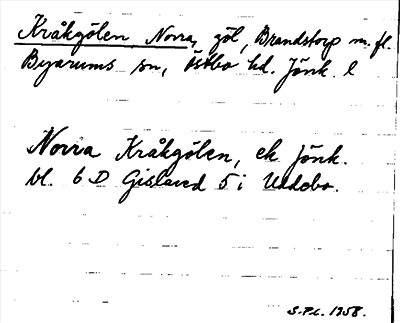 Kråkgölen Norra, göl, Brandstorp m. fl.
Byarums sn, Östbo hd. Jönk. l
Norra Kråkgölen, ek Jönk.
bl. 6 D Gislaved 5 i Uddebo.
S.P.L. 1958.